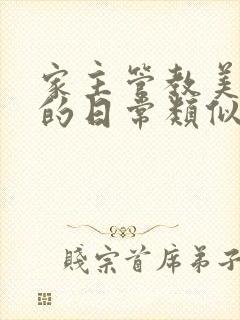 家主管教美
的日常類似
賤宗首席弟子